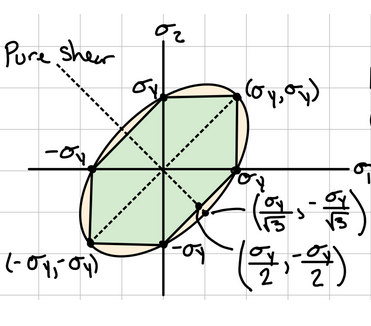 σ₂
Pure shear
σy
(σy,σy)
-σy
σ₁
σy
(σy/√3,-σy/√3)
(-σy,-σy)
-σy
(σy/2,-σy/2)